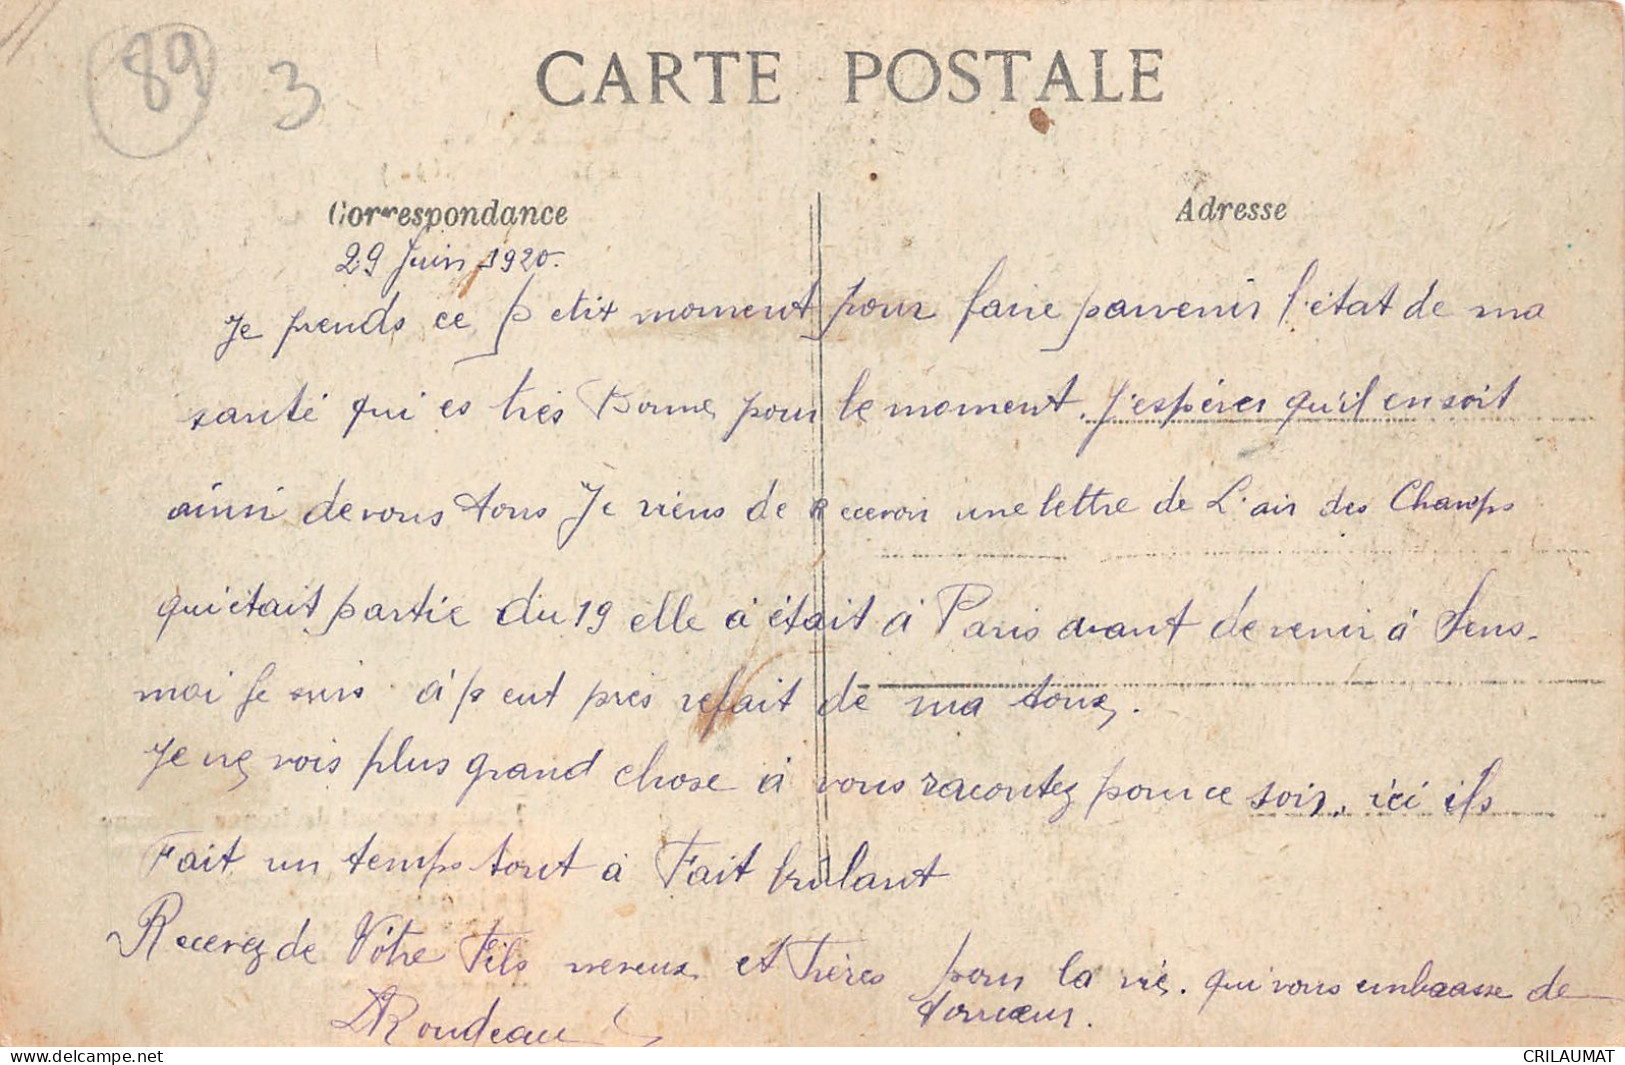 89 3
CARTE POSTALE
Correspondance
Adresse
29 Juin 1920.
Je prends ce petit moment pour faire parvenir l'état de ma
santé qui es très Bonne pour le moment. j'espères qu'il en soit
ainsi de vous tous Je viens de Recevoir une lettre de L'air des Champs
qui était partie du 19 elle à était à Paris avant de venir à Sens.
moi je suis à peut près refait de ma toux.
Je ne vois plus grand chose à vous racontez pour ce soir, ici ils
Fait un temps tout à Fait brûlant
Recevez de Vôtre Fils neveux et Frères pour la vie. qui vous embrasse de
tout cœur.
Rondeau
www.delcampe.net
CRILAUMAT